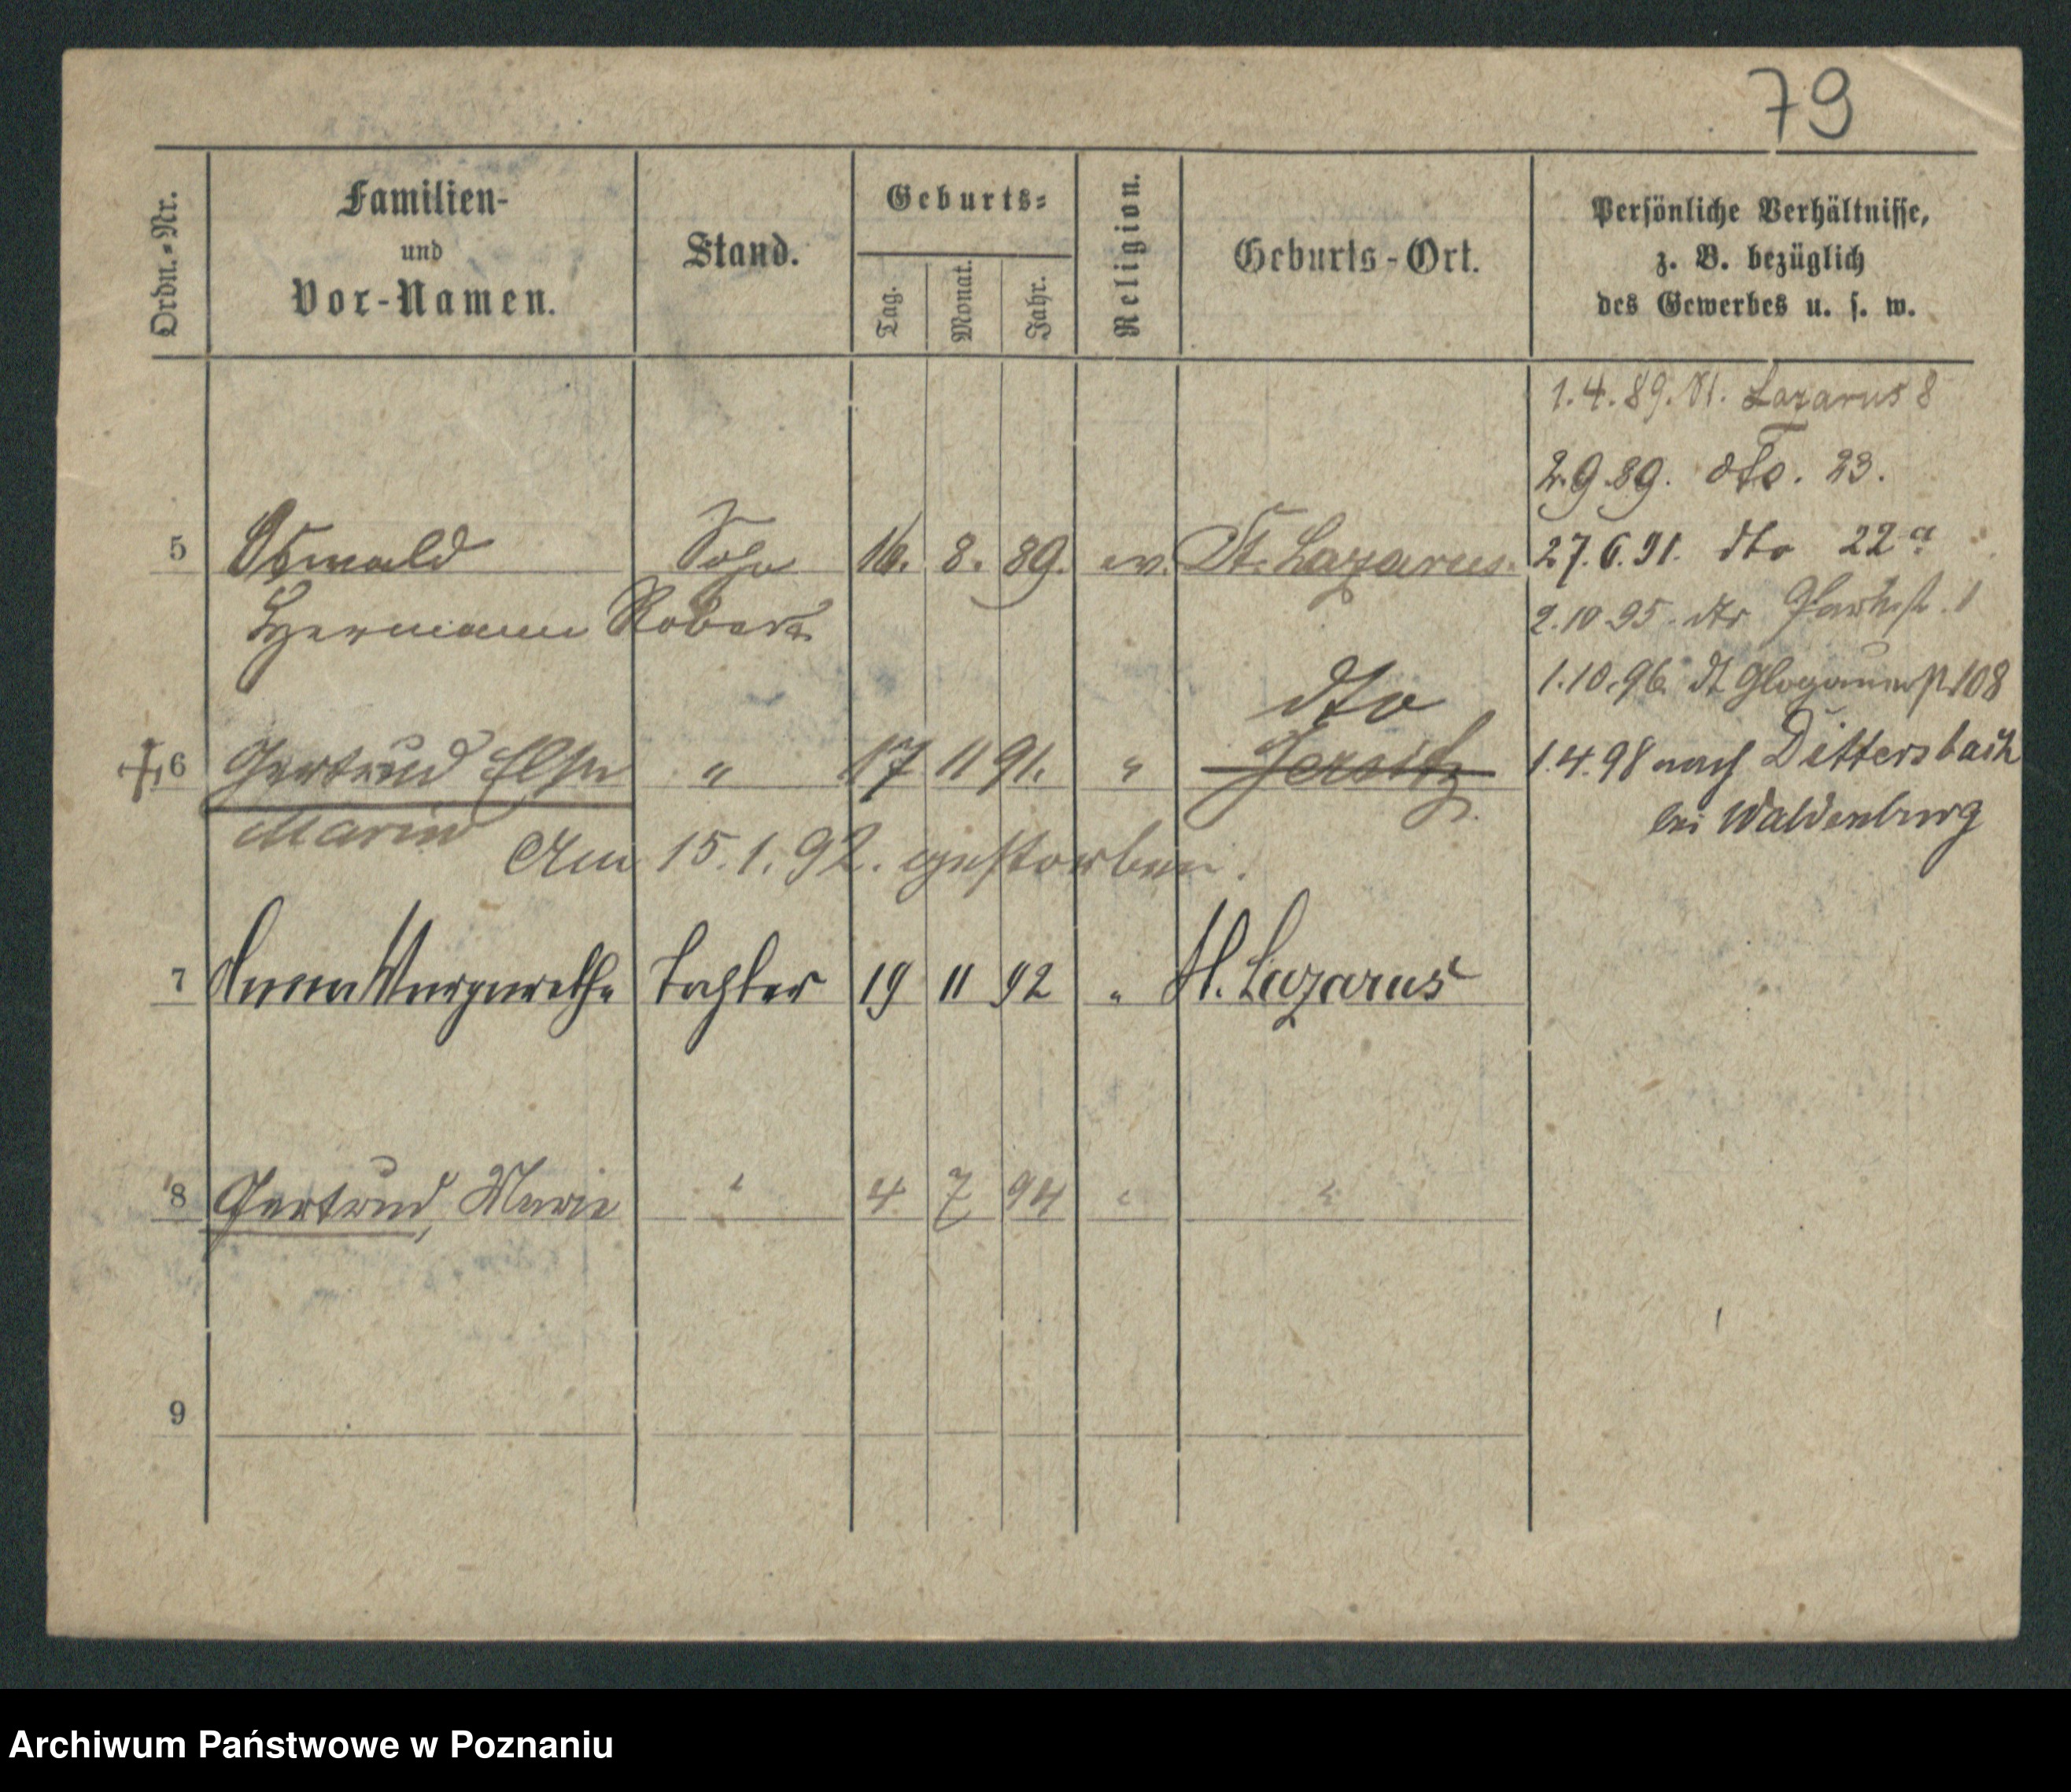 79
Ordn.-Nr.
Familien-
und
Vor-Namen.
Stand.
Geburts-
Tag.
Monat.
Jahr.
Religion.
Geburts-Ort.
Persönliche Verhältnisse,
z. B. bezüglich
des Gewerbes u. s. w.
1.4.89. St. Lazarus 8
2.9.89. dto. 23.
5 Oswald Sohn 16. 8. 89. ev. St. Lazarus. 27.6.91. dto 22a
Hermann Robert 2.10.95. dto 1
dto 1.10.96. dt Glogauerst 108
6 Gertrud Else " 17 11 91. " Jersitz 1.4.98 nach Dittersbach
Marie bei Waldenburg
Am 15.1.92. gestorben.
7 Anna Margarethe Tochter 19 11 92 " St. Lazarus
8 Gertrud, Marie " 4 7 94 " "
9
Archiwum Państwowe w Poznaniu